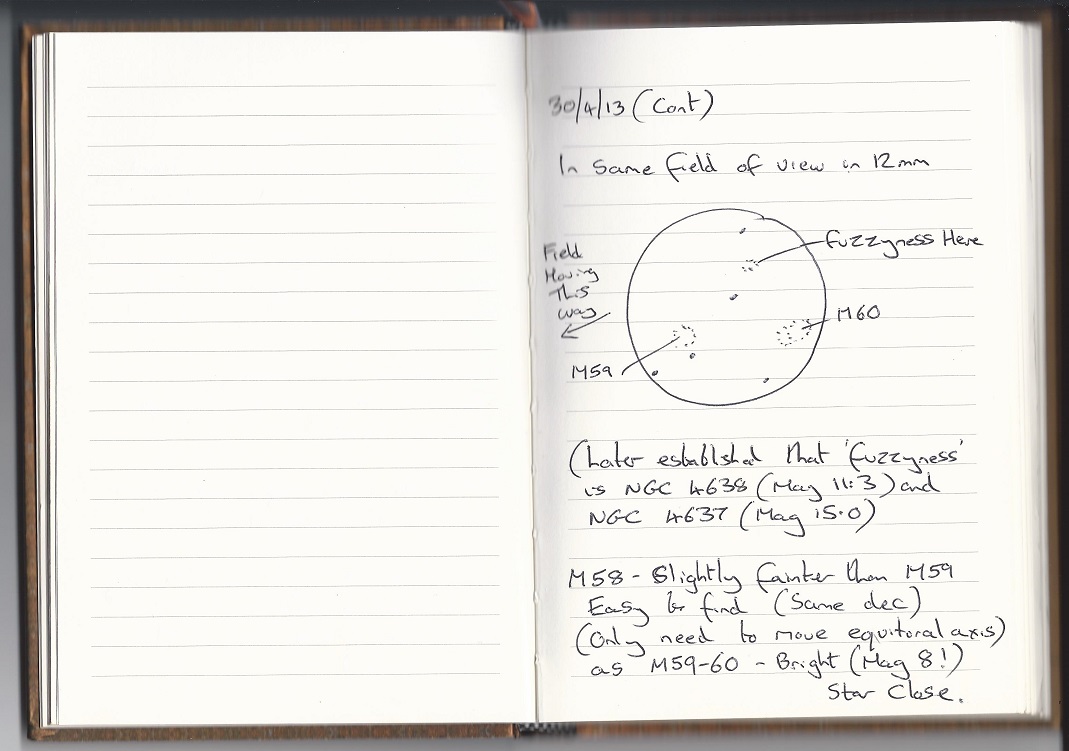 30/4/13 (Cont)
In same field of view in 12mm
Fuzzyness Here
Field
Moving
This
way
M60
M59
(Later established that 'fuzzyness'
is NGC 4638 (Mag 11.3) and
NGC 4637 (Mag 15.0)
M58 - Slightly fainter than M59
Easy to find (Same dec)
(Only need to move equitoral axis)
as M59-60 - Bright (Mag 8!)
Star Close.